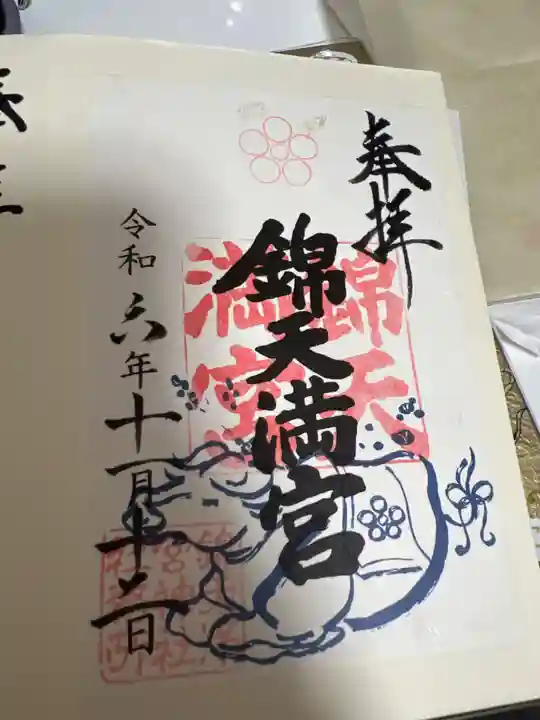 奉拝
錦天満宮
錦天
満宮
令和六年十一月十二日